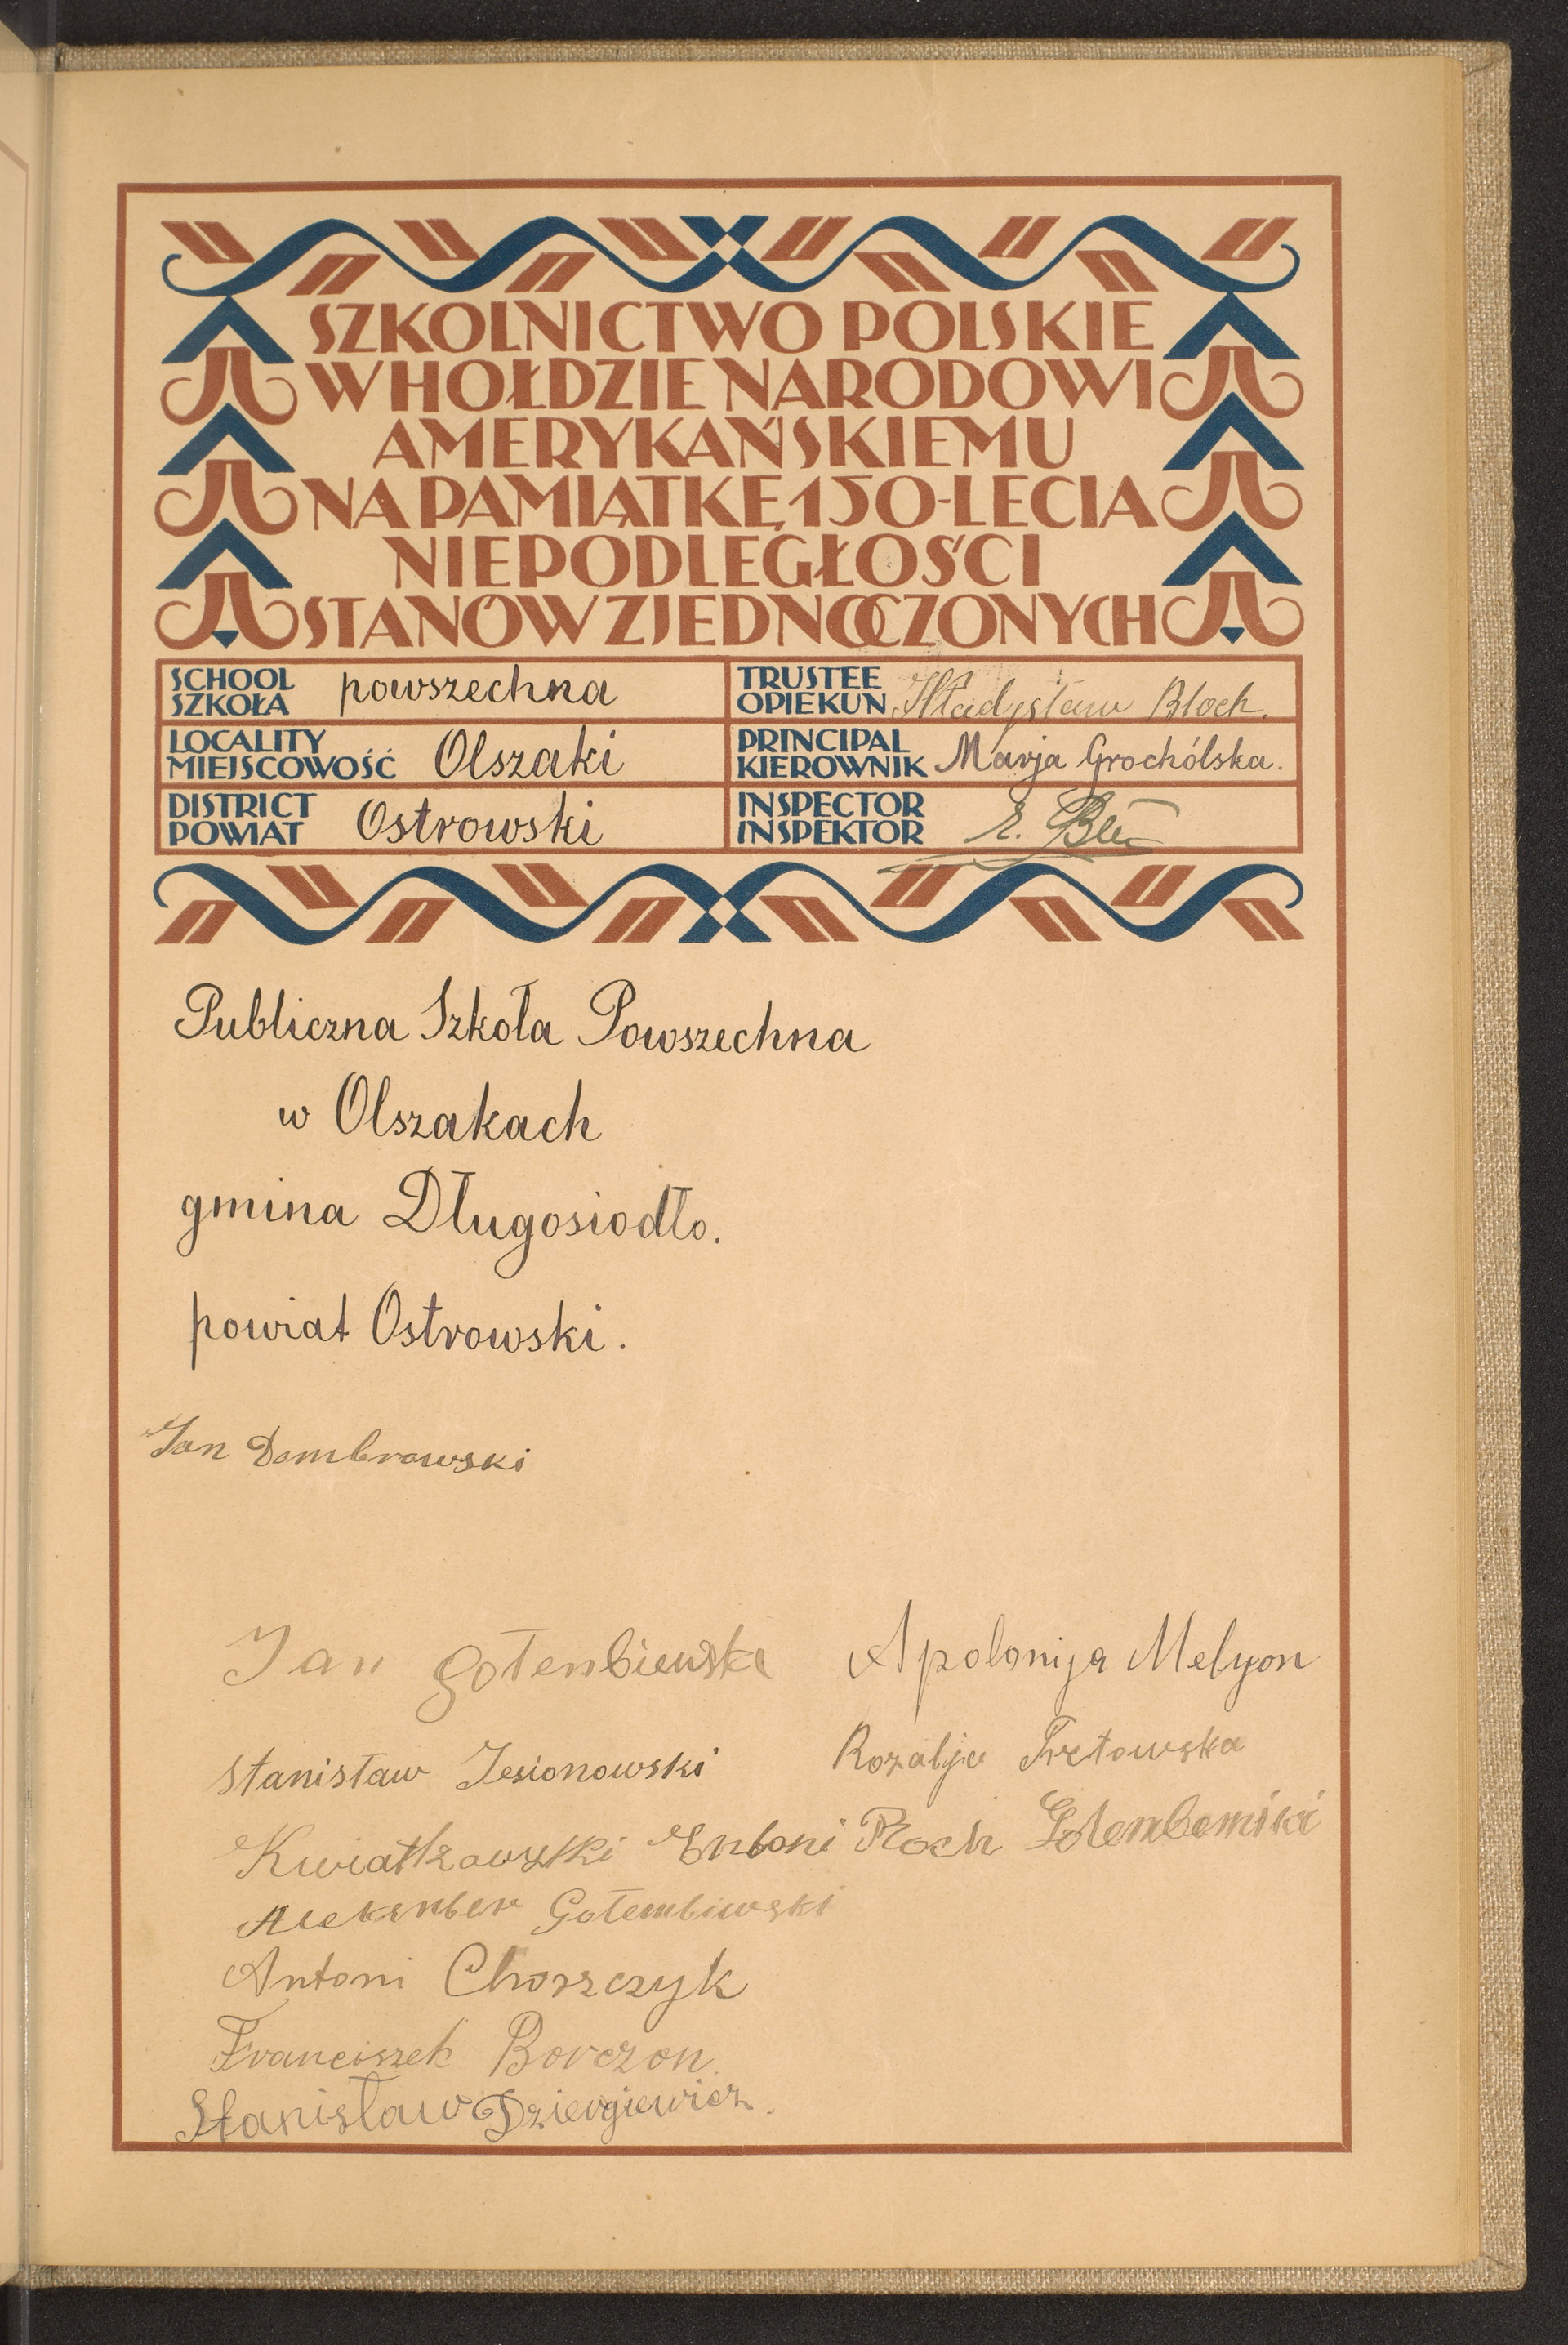 SZKOLNICTWO POLSKIE
W HOŁDZIE NARODOWI
AMERYKAŃSKIEMU
NA PAMIĄTKĘ 150-LECIA
NIEPODLEGŁOŚCI
STANÓW ZJEDNOCZONYCH
SCHOOL
SZKOŁA powszechna
TRUSTEE
OPIEKUN Władysław Bloch.
LOCALITY
MIEJSCOWOŚĆ Olszaki
PRINCIPAL
KIEROWNIK Marja Grochólska.
DISTRICT
POWIAT Ostrowski
INSPECTOR
INSPEKTOR
Publiczna Szkoła Powszechna
w Olszakach
gmina Długosiodło.
powiat Ostrowski.
Jan Dombrowski
Jan Gołenbiewski Apolonija Melyon
Stanisław Jesionowski Rozalja
Kwiatkowski Roch
Gołembiwski
Antoni Choszczyk
Franciszek Borczon
Stanisław Dziergiewicz.